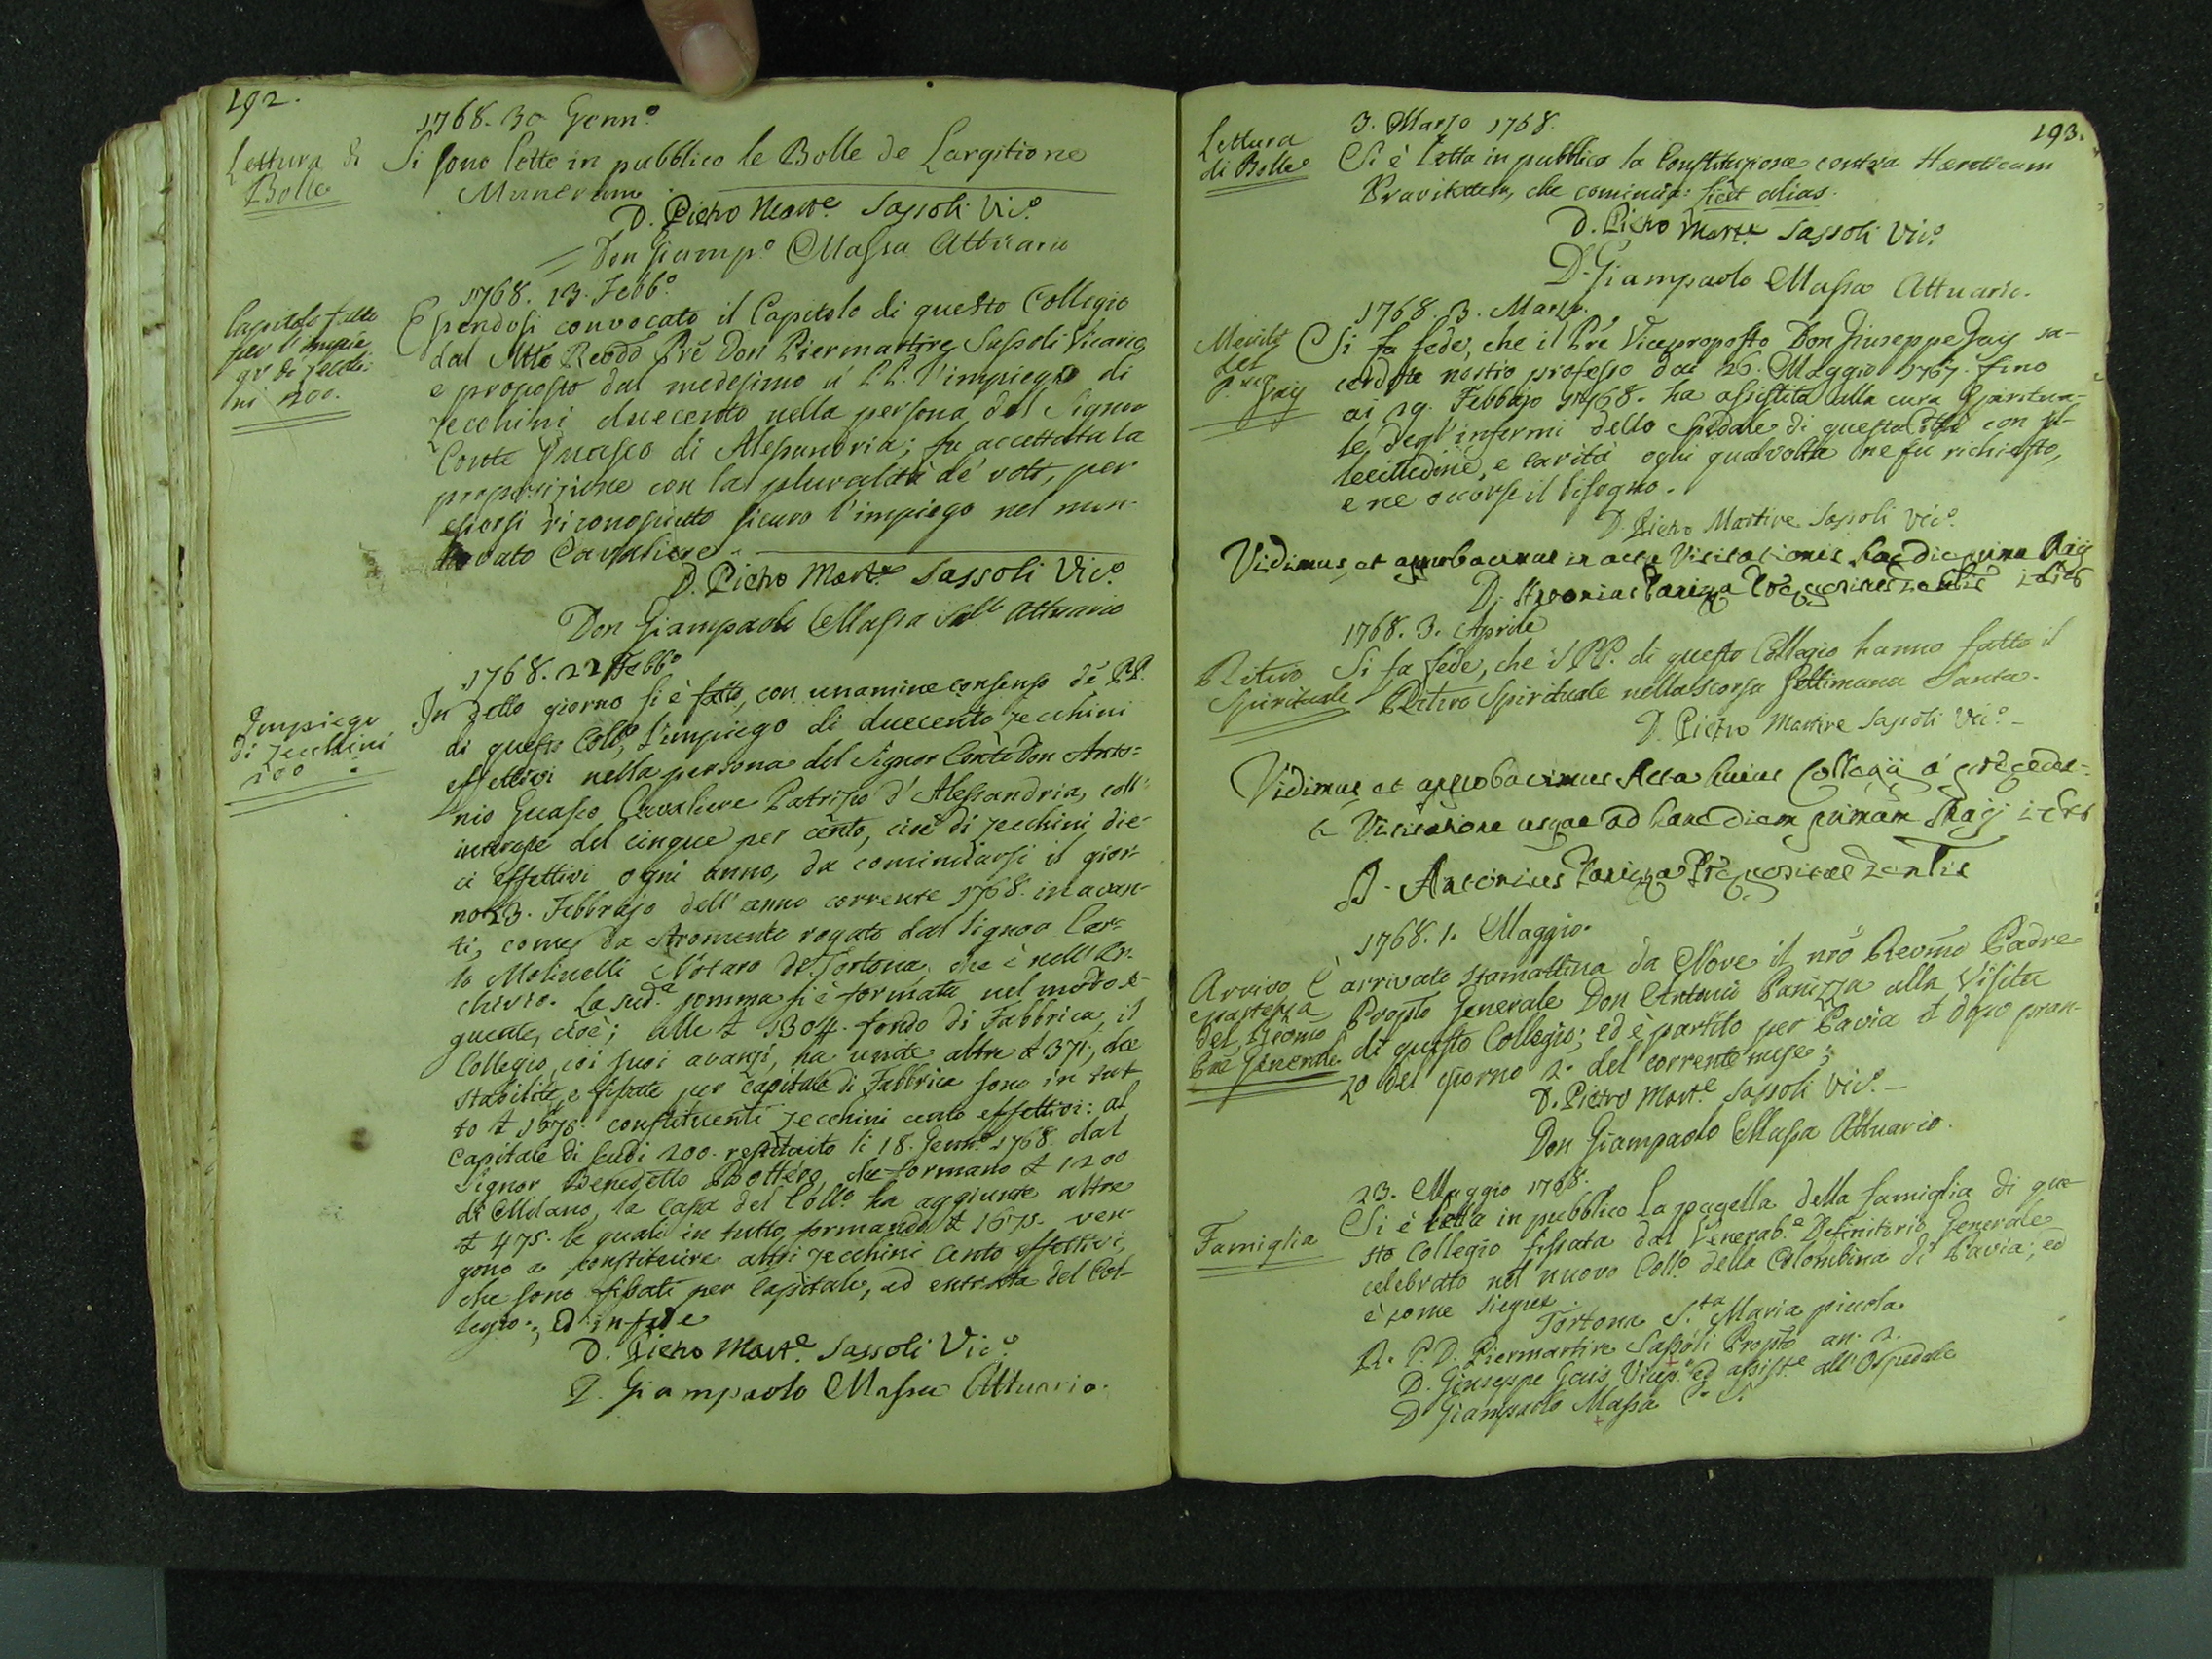 192.
1768. 30 Genn.º
Lettura di
Bolle
Si sono lette in pubblico le Bolle de Largitione
Munerum
D. Pietro Mart.e Sassoli Vic.º
Don Giamp.º Massa Attuario
1768. 13. Febb.º
Capitolo fatto
per l'impie
go di zecchi
ni 200.
Essendosi convocato il Capitolo di questo Collegio
dal Mtto Revdo Pre Don Piermartire Sassoli Vicario
e proposto dal medesimo a' PP. l'impiego di
zecchini duecento nella persona del Signor
Conte Guasco di Alessandria; fu accettata la
proposizione con la pluralità de' voti, per
essersi riconosciuto sicuro l'impiego nel men-
tovato Cavaliere.
D. Pietro Mart.e Sassoli Vic.º
Don Giampaolo Massa Attuario
1768. 22 Febb.º
Impiego
di zecchini
200.
In detto giorno si è fatto, con unamine consenso de' PP.
di questo Coll.º, l'impiego di duecento zecchini
effettivi nella persona del Signor Conte Don Anto=
nio Guasco Cavaliere Patrizio d'Alessandria, coll'
interesse del cinque per cento, cioè di zecchini die-
ci effettivi ogni anno, da cominciarsi il gior-
no 23. Febbrajo dell'anno corrente 1768. in avan-
ti, come da stromento rogato dal Signor Car-
lo Molinelli Notaro di Tortona, che è nell'Ar-
chivio. La sud.a somma si è formata nel modo se-
guente, cioè; alle £ 1304. fondo di Fabbrica, il
Collegio, coi suoi avanzi, ha unite altre £ 371; che
stabilite, e fissate per capitale di Fabbrica sono in tut
to £ 1675. constituenti zecchini cento effettivi: al
Capitale di scudi 200. restituito li 18. Genn.º 1768. dal
Signor Benedetto Bottero, che formano £ 1200
di Milano, la casa del Coll.º ha aggiunte altre
£ 475. le quali in tutto formando £ 1675. ven-
gono a constituire altri zecchini cento effettivi,
che sono fissati per Capitale, ad entrata del Col-
legio; Ed in fede
D. Pietro Mart.e Sassoli Vic.º
D. Giampaolo Massa Attuario.
193.
3. Marzo 1768.
Lettura
di Bolle
Si è letta in pubblico la Constituzione contra Hæreticam
Pravitatem, che comincia: sicut alias.
D. Pietro Mart.e Sassoli Vic.º
D. Giampaolo Massa Attuario.
1768. 3. Marzo.
del
P. Gaij
Si fa fede, che il Pre Viceproposto Don Giuseppe Gaij sa-
cerdote nostro professo dai 26. Maggio 1767. fino
ai 19. Febbajo 1768. ha assistito alla cura spiritua-
le degl'infermi dello spedale di questa Città con sol-
lecitudine, e carità ogni qualvolta ne fu richiesto,
e ne occorse il bisogno.
D. Pietro Martire Sassoli Vic.º
Vidimus, et approbavimus in actu Visitationis hac die prima Maij
D. Antonius Paniza Præpositus
1768. 3. Aprile
Ritiro
Spirituale
Si fa fede, che i PP. di questo Collegio hanno fatto il
Ritiro Spirituale nella scorsa Settimana Santa.
D. Pietro Martire Sassoli Vic.º
Vidimus, et approbavimus Acta huius Collegij á præceden-
te Visitatione usque ad hanc diem primam Maij
D. Antonius Paniza Præpositus
1768. 1. Maggio.
Arrivo
e partenza
del Revmo
Pre Generale
È arrivato stamattina da Nove il nro Revmo Padre
Propto Generale Don Antonio Panizza alla Visita
di questo Collegio; ed è partito per Pavia dopo pran-
zo del giorno 2. del corrente mese;
D. Pietro Mart.e Sassoli Vic.º
Don Giampaolo Massa Attuario.
23. Maggio 1768.
Famiglia
Si è letta in pubblico la pagella della famiglia di que-
sto Collegio fissata dal Venerab.e Definitorio Generale
celebrato nel nuovo Coll.º della Colombina di Pavia; ed
è come siegue.
Tortona S.ta Maria picola
R. P. D. Piermartire Sassoli Propto an. 2.
D. Giuseppe Gais Vicep.º ed assist.e all'Ospedale
D Giampaolo Massa